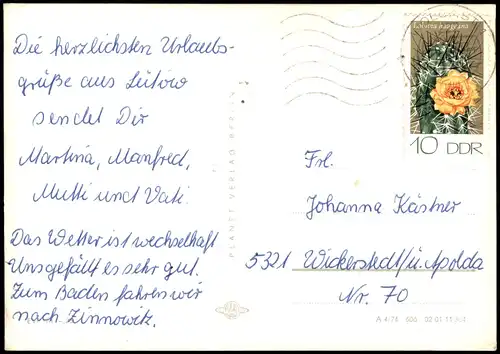 Die herzlichsten Urlaubs-
grüße aus Lütow
sendet Dir
Martina, Manfred,
Mutti und Vati.
Das Wetter ist wechselhaft
Uns gefällt es sehr gut.
Zum Baden fahren wir
nach Zinnowitz.
PLANET VERLAG BERLIN
10 DDR
Frl.
Johanna Kästner
5321 Wickerstedt/ü. Apolda
Nr. 70
A 4/74